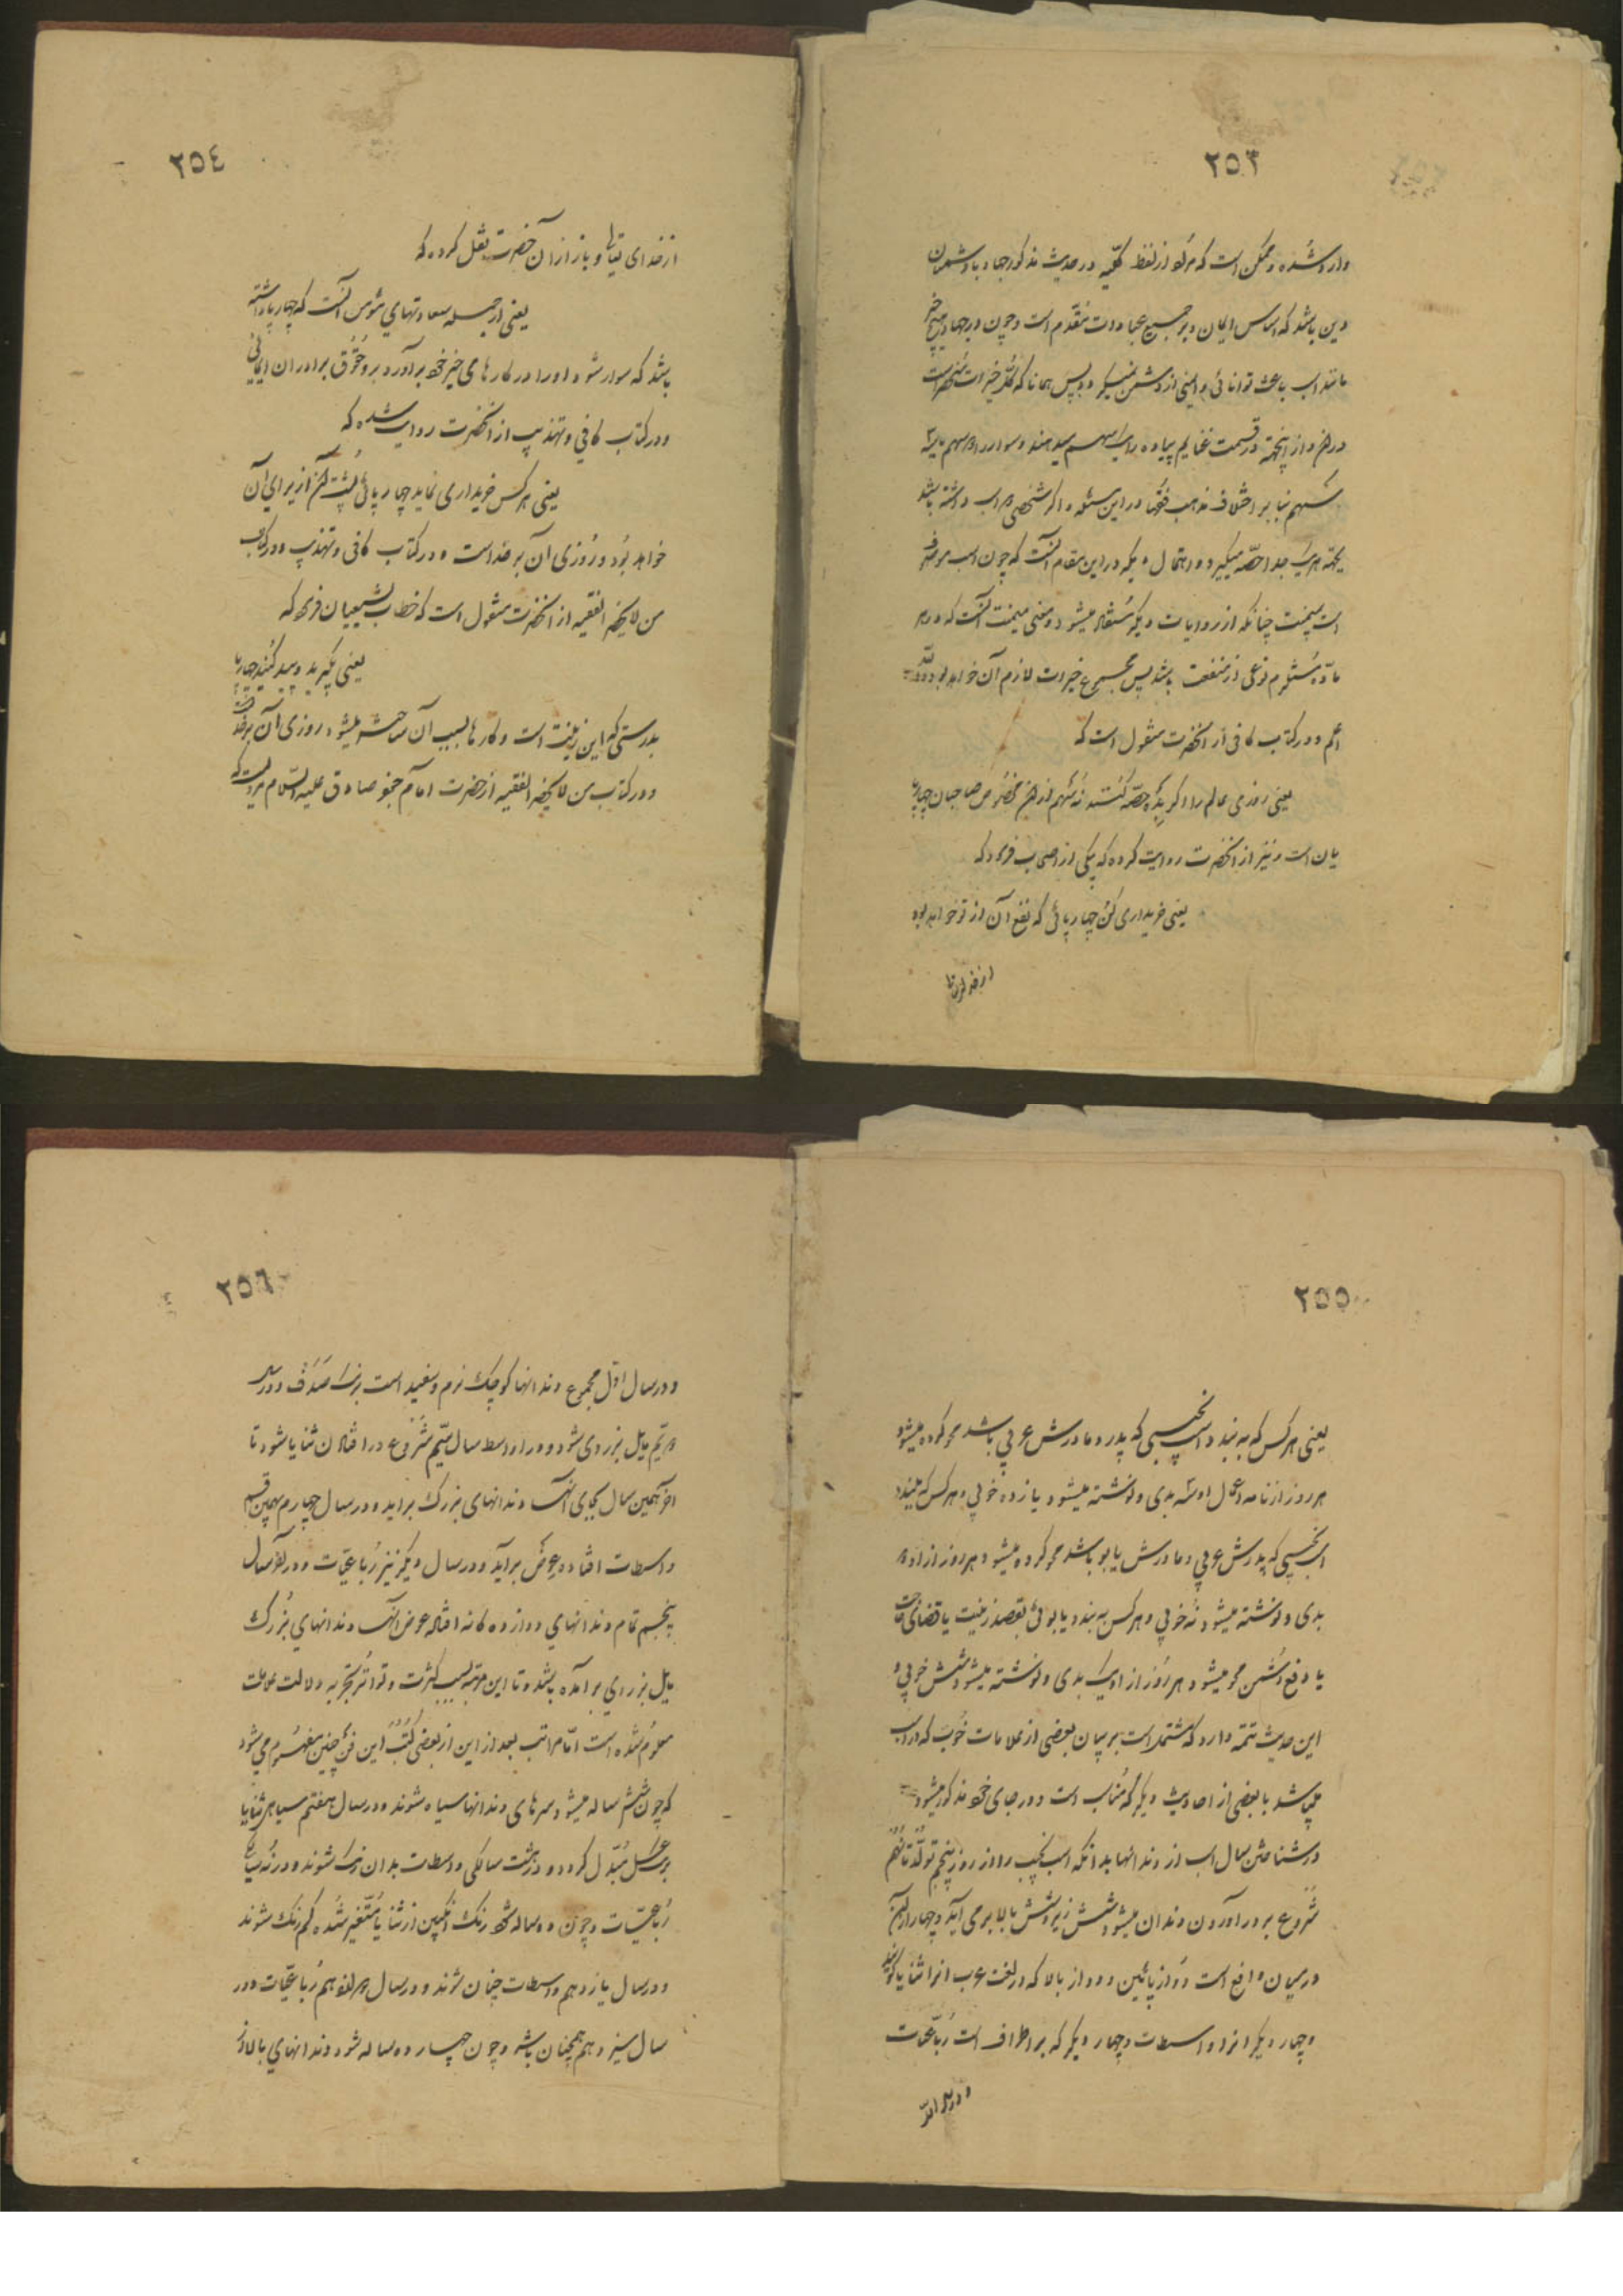 ٢٥٣
وارد شده و ممکن است که مراد از لفظ کلمه در حدیث مذکور جهاد با دشمنان
دین باشد که اساس ایمان و بر جمیع عبادات مقدم است و چون در جهاد هیچ چیز
مانند اسب باعث توانائی و ایمنی از دشمن نمیگردد پس همانا که کل خیرات منحصر است
در آن و از اینجهة در قسمت غنایم پیاده را یک سهم میدهند و سوار را دو سهم یا سه
سهم بنا بر اختلاف مذهب فقها در این مسئله و اگر شخصی دو اسب داشته باشد
بجهة هر یک جدا حصه میگیرد و احتمال دیگر در این مقام آنست که چون اسب موصوف
است بمیمنت چنانکه از روایات دیگر مستفاد میشود و معنی میمنت آنست که در هر
ماده مستلزم نوعی از منفعت باشد پس مجموع خیرات لازم آن خواهد بود والله
اعلم و در کتاب کافی از آنحضرت منقول است که
یعنی روزی عالم را اگر به ده حصه کنند نه سهم از آن مخصوص صاحبان چهارپا
یان است و نیز از آنحضرت روایت کرده که بیکی از اصحاب فرمود که
یعنی خریداری کن چهارپائی که نفع آن از تو خواهد بود
از خدایتعا
٢٥٤
از خدای تعالی و باز از آن حضرت نقل کرده که
یعنی از جمله سعادتهای مؤمن آنست که چهارپا داشته
باشد که سوار شود او را در کارهای خیر خود برآورد برو حقوق برادران ایمانی
و در کتاب کافی و تهذیب از آنحضرت روایت شده که
یعنی هر کس خریداری نماید چهارپائی پشت آن از برای آن
خواهد بود و روزی آن بر خداست و در کتاب کافی و تهذیب و در کتاب
من لا یحضر الفقیه از آنحضرت منقول است که خطاب بشیعیان فرموده که
یعنی بگیرید و پیدا کنید چهارپا
بدرستی که این زینت است و کارها بسبب آن ساخته میشود و روزی آن بر خداست
و در کتاب من لا یحضر الفقیه از حضرت امام جعفر صادق علیه السلام مرویست که
٢٥٥
یعنی هر کس که به بندد اسب نجیبی که پدر و مادرش عربی باشد محو کرده میشود
هر روز از نامه اعمال او سه بدی و نوشته میشود یازده خوبی و هر کس که ببندد
اسب نجیبی که پدرش عربی و مادرش یابو باشد محو کرده میشود هر روز از او دو
بدی و نوشته میشود نه خوبی و هر کس به بندد یابوئی بقصد زینت یا قضای حاجت
یا دفع دشمن محو میشود هر روز از او یک بدی و نوشته میشود شش خوبی و
این حدیث تتمه دارد که مشتمل است بر بیان بعضی از علامات خوب که در اسب
میباشد با بعضی از احادیث دیگر که مناسب است و در جای خود مذکور میشود
در شناختن سال اسب از دندانها بدانکه اسب نجیب را از روز پنجم تولد تا نهم
شروع بر در آوردن دندان میشود شش زیر و شش بالا بر می آید و چهار از این
درمیان واقع است دو از پائین و دو از بالا که در لغت عرب انرا ثنایا گویند
و چهار دیگر انرا واسطات و چهار دیگر که بر اطراف است رباعیات
و در سال
٢٥٦
و در سال اول مجموع دندانها کوچک نرم و سفید است برنک صدف و در سال
دویم مایل بزردی شود و در اواسط سال سیم شروع در افتادن ثنایا شود تا
آخر همین سال بجای آنها دندانهای بزرک براید و در سال چهارم بهمین قسم
واسطات افتاده عوض برآید و در سال دیگر نیز رباعیات و در آخر سال
پنجم تمام دندانهای دوازده کانه افتاده عوض آنها دندانهای بزرک
مایل بزردی برآمده باشد و تا این مرتبه بسبب کثرت و تواتر تجربه دلالت علامت
معلوم شده است اما مراتب بعد از این از بعضی کتب این فن چنین مفهوم می شود
که چون شش ساله میشود سرهای دندانها سیاه شوند و در سال هفتم سیاهی ثنایا
برنک عسل مبدل کردد و در هشت سالکی واسطات بدان رنک شوند و در نه سالگی
رباعیات و چون ده ساله شود رنک انگبین از ثنایا متغیر شده کم رنک شوند
و در سال یازدهم واسطات چنان شوند و در سال دوازدهم رباعیات و در
سال سیزدهم همچنان باشد و چون چهارده ساله شود دندانهای بالا از